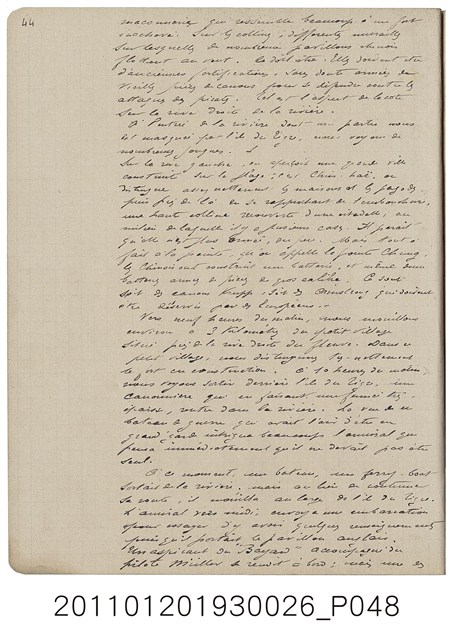 44
maçonnerie qui ressemble beaucoup à un fort
inachevé. Sur les collines, différentes murailles
sur lesquelles de nombreux pavillons chinois
flottent au vent.
d'anciennes fortifications, sans doute armées de
vieilles pièces de canons pour se défendre contre les
attaques des pirates. Tel est l'aspect de la côte
sur la rive droite de la rivière.
A l'entrée de la rivière dont une partie nous
est masquée par l'île du Tigre, nous voyons de
nombreuses jonques.
Sur la rive gauche, on aperçoit une grande ville
construite sur la plage; c'est Chin-haï, on
distingue assez nettement les maisons et les pagodes
puis près de là en se rapprochant de l'embouchure,
une haute colline recouverte d'une citadelle, au
milieu de laquelle il y a plusieurs cases. Il paraît
qu'elle n'est plus armée, ou peu. Mais tout à
fait à la pointe, qu'on appelle la pointe
les Chinois ont construit une batterie, et même une
batterie armée de pièces de gros calibre. Ce sont
soit des canons Krupp, soit des Armstrong qui doivent
être desservis par des Européens.
Vers neuf heures du matin, nous mouillons
environ à 3 kilomètres du petit village
situé près de la rive droite du fleuve. Dans ce
petit village, nous distinguons très nettement
le fort en construction. A 10 heures du matin,
nous voyons sortir derrière l'île du Tigre, une
canonnière qui en faisant une fumée très
épaisse, rentre dans la rivière. La vue de ce
bateau de guerre qui avait l'air d'être en
grand'garde intrigua beaucoup l'amiral qui
pensa immédiatement qu'il ne devait pas être
seul.
A ce moment, un bateau, un ferry-boat
sortait de la rivière, mais au lieu de continuer
sa route, il mouilla au large de l'île du Tigre.
L'amiral vers midi, envoya une embarcation
pour essayer d'y avoir quelques renseignements
puisqu'il portait le pavillon anglais.
Un aspirant du "Bayard" accompagné du
pilote Müller se rendit à bord; mais une des
201101201930026_P048